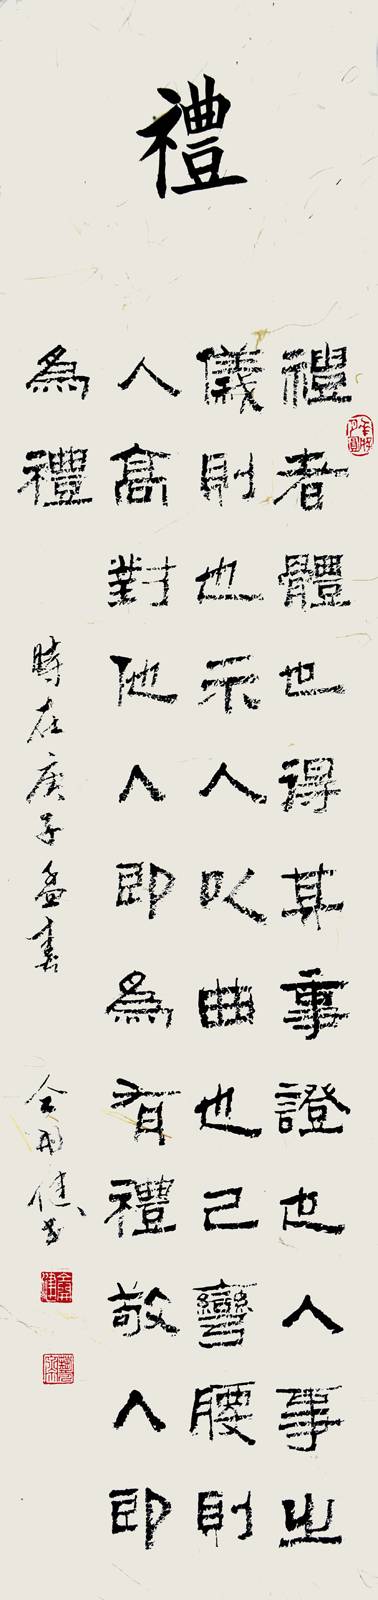 禮
禮者體也得其事證也人事之
儀則也示人以曲也己彎腰則
人高對他人即為有禮敬人即
為禮
時在庚子孟春